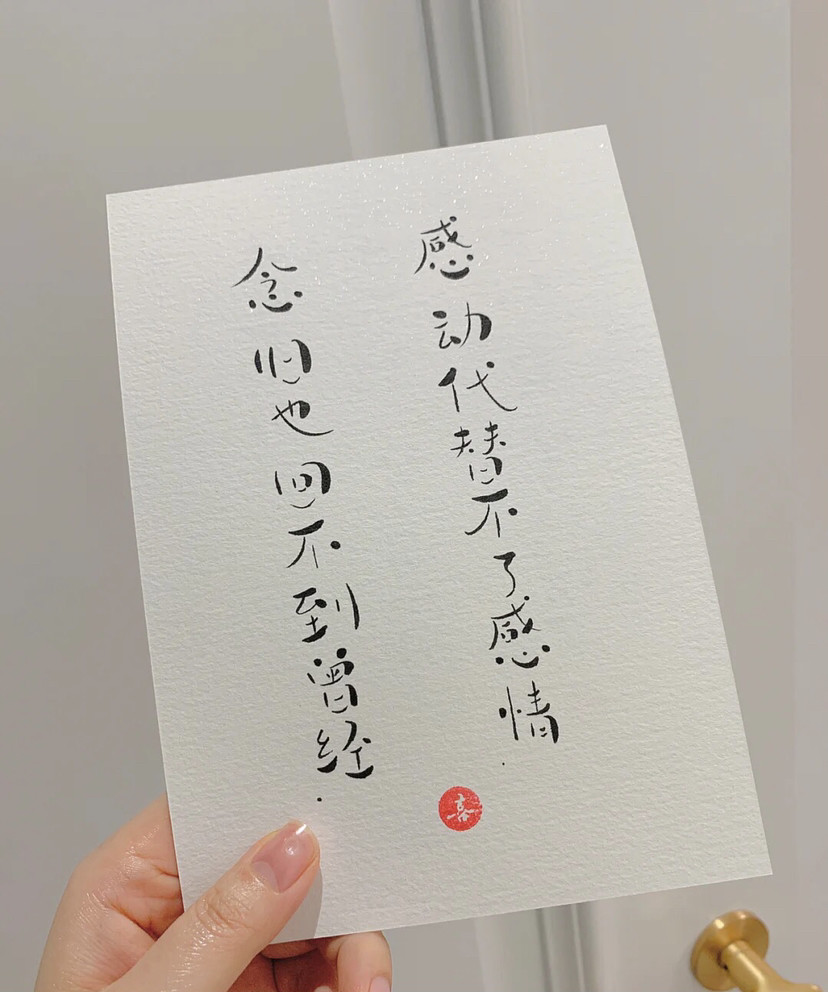 感动代替不了感情.
念旧也回不到曾经.